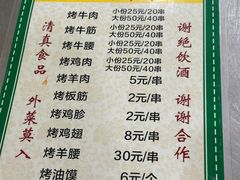 烤牛肉 小份25元/20串
大份50元/40串
烤牛筋 小份25元/20串
大份50元/40串
烤牛腰 小份25元/20串
大份50元/40串
烤鸡肉 小份25元/20串
大份50元/40串
烤羊肉 5元/串
烤板筋 2元/串
烤鸡胗 2元/串
烤鸡翅 8元/串
烤羊腰 30元/串
烤油馍 6元/个
清真食品
外菜莫入
谢绝饮酒
谢谢合作